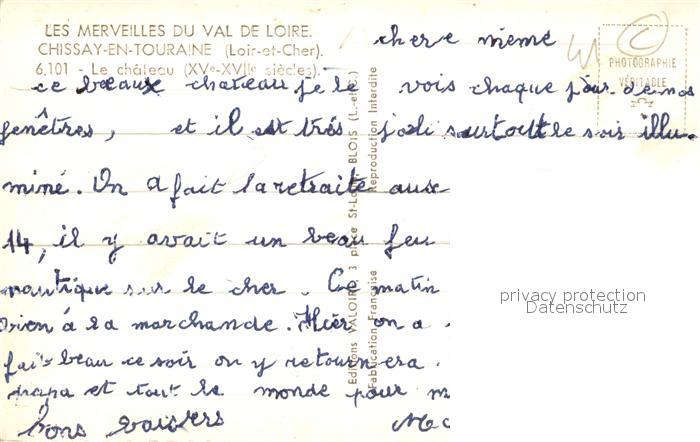 LES MERVEILLES DU VAL DE LOIRE.
CHISSAY-EN-TOURAINE (Loir-et-Cher).
6.101 - Le château (XVe-XVIIe siècles).
PHOTOGRAPHIE
VÉRITABLE
Editions VALOIRE, 3 place St-Louis BLOIS (L.-et-C.)
Fabrication Française Reproduction Interdite
chere meme
ce beaux chateau je le vois chaque jour de nos
fenêtres, et il est trés joli surtout le soir illu-
miné. On a fait la retraite aux
14, il y avait un beau feu
nautique sur le cher. Ce matin
bien á la marchande. Hier on a
fait beau ce soir on y retournera.
papa et tout le monde pour m
bons baisers
privacy protection
Datenschutz